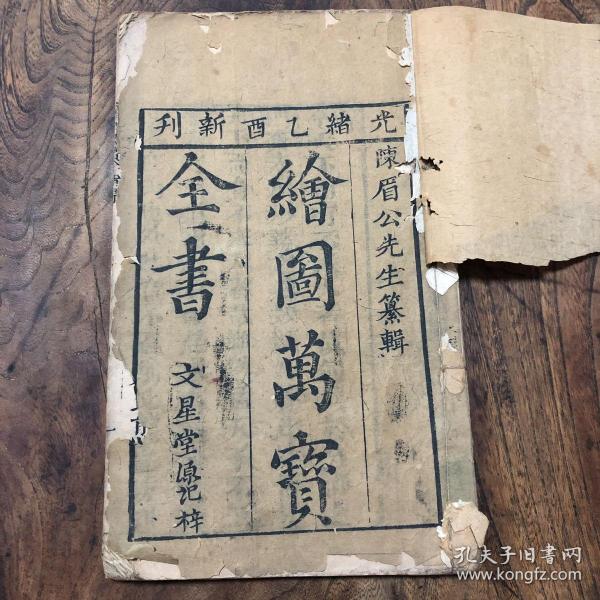 光緒乙酉新刊
陳眉公先生纂輯
繪圖萬寶
全書
文星堂原記梓
孔夫子旧书网
www.kongfz.com